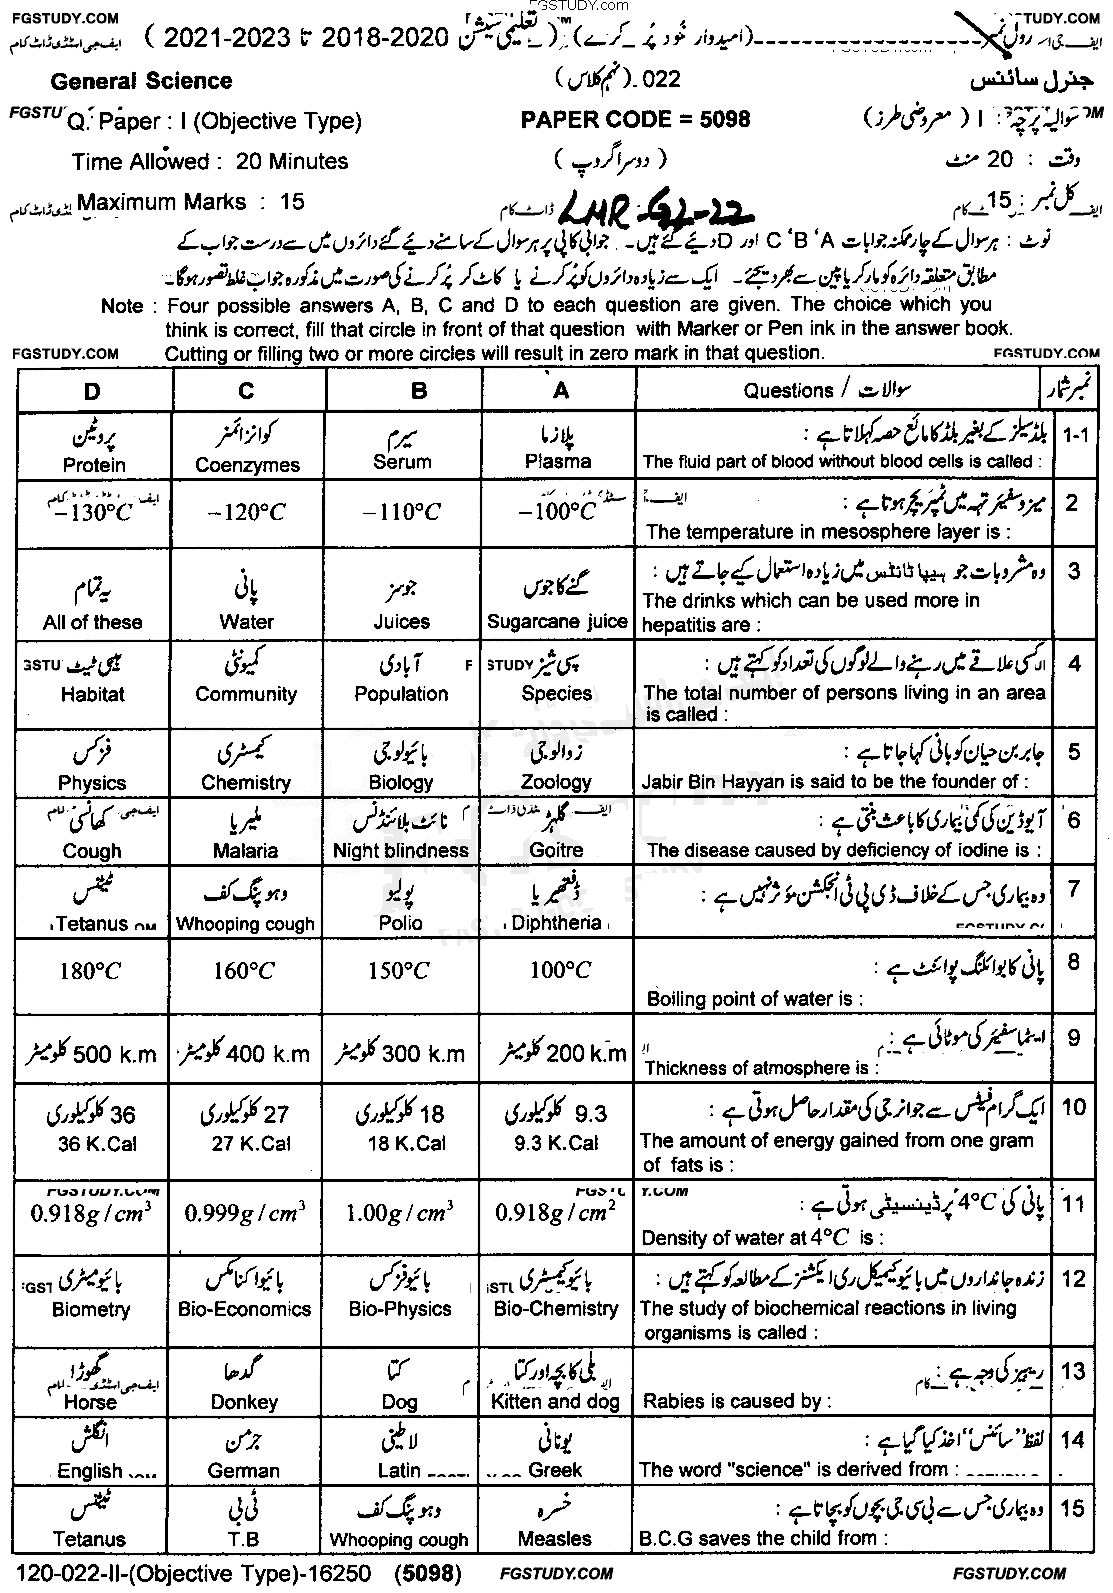 FGSTUDY.COM
FGSTUDY.COM رول نمبر ـــــــ (امیدوار خود پُر کرے) (تعلیمی سیشن 2018-2020 تا 2021-2023) FGSTUDY.COM
ایف جی اسٹڈی ڈاٹ کام
General Science (نہم کلاس)۔022 جنرل سائنس
Q. Paper : I (Objective Type) PAPER CODE = 5098 سوالیہ پرچہ : I (معروضی طرز)
Time Allowed : 20 Minutes (دوسرا گروپ) وقت : 20 منٹ
Maximum Marks : 15 LHR-G2-22 کل نمبر : 15
نوٹ : ہر سوال کے چار ممکنہ جوابات A ، B ، C اور D دیئے گئے ہیں۔ جوابی کاپی پر ہر سوال کے سامنے دیئے گئے دائروں میں سے درست جواب کے
مطابق متعلقہ دائرہ کو مارکر یا پین سے بھر دیجئے۔ ایک سے زیادہ دائروں کو پُر کرنے یا کاٹ کر پُر کرنے کی صورت میں مذکورہ جواب غلط تصور ہوگا۔
Note : Four possible answers A, B, C and D to each question are given. The choice which you
think is correct, fill that circle in front of that question with Marker or Pen ink in the answer book.
FGSTUDY.COM Cutting or filling two or more circles will result in zero mark in that question. FGSTUDY.COM
D C B A Questions / سوالات نمبر شمار
پروٹین کوانزائمز سیرم پلازما بلڈ سیلز کے بغیر بلڈ کا مائع حصہ کہلاتا ہے : 1-1
Protein Coenzymes Serum Plasma The fluid part of blood without blood cells is called :
−130°C −120°C −110°C −100°C میزوسفیئر تہہ میں ٹمپریچر ہوتا ہے : 2
The temperature in mesosphere layer is :
یہ تمام پانی جوسز گنے کا جوس وہ مشروبات جو ہیپاٹائٹس میں زیادہ استعمال کیے جاتے ہیں : 3
All of these Water Juices Sugarcane juice The drinks which can be used more in
hepatitis are :
ہیبی ٹیٹ کمیونٹی آبادی سپی شیز کسی علاقے میں رہنے والے لوگوں کی تعداد کو کہتے ہیں : 4
Habitat Community Population Species The total number of persons living in an area
is called :
فزکس کیمسٹری بائیولوجی زوالوجی جابر بن حیان کو بانی کہا جاتا ہے : 5
Physics Chemistry Biology Zoology Jabir Bin Hayyan is said to be the founder of :
کھانسی ملیریا نائٹ بلائنڈنس گلہڑ آیوڈین کی کمی بیماری کا باعث بنتی ہے : 6
Cough Malaria Night blindness Goitre The disease caused by deficiency of iodine is :
ٹیٹنس وہوپنگ کف پولیو ڈفتھیریا وہ بیماری جس کے خلاف ڈی پی ٹی انجکشن مؤثر نہیں ہے : 7
Tetanus Whooping cough Polio Diphtheria
180°C 160°C 150°C 100°C پانی کا بوائلنگ پوائنٹ ہے : 8
Boiling point of water is :
500 k.m کلومیٹر 400 k.m کلومیٹر 300 k.m کلومیٹر 200 k.m کلومیٹر ایٹماسفیئر کی موٹائی ہے : 9
Thickness of atmosphere is :
36 کلوکیلوری 27 کلوکیلوری 18 کلوکیلوری 9.3 کلوکیلوری ایک گرام فیٹس سے جو انرجی کی مقدار حاصل ہوتی ہے : 10
36 K.Cal 27 K.Cal 18 K.Cal 9.3 K.Cal The amount of energy gained from one gram
of fats is :
0.918g/cm³ 0.999g/cm³ 1.00g/cm³ 0.918g/cm² پانی کی 4°C پر ڈینسیٹی ہوتی ہے : 11
Density of water at 4°C is :
بائیومیٹری بائیواکنامکس بائیوفزکس بائیوکیمسٹری زندہ جانداروں میں بائیوکیمیکل ری ایکشنز کے مطالعہ کو کہتے ہیں : 12
Biometry Bio-Economics Bio-Physics Bio-Chemistry The study of biochemical reactions in living
organisms is called :
گھوڑا گدھا کتا بلی کا بچہ اور کتا ریبیز کی وجہ ہے : 13
Horse Donkey Dog Kitten and dog Rabies is caused by :
انگلش جرمن لاطینی یونانی لفظ "سائنس" اخذ کیا گیا ہے : 14
English German Latin Greek The word "science" is derived from :
ٹیٹنس ٹی بی وہوپنگ کف خسرہ وہ بیماری جس سے بی سی جی بچوں کو بچاتا ہے : 15
Tetanus T.B Whooping cough Measles B.C.G saves the child from :
120-022-II-(Objective Type)-16250 (5098) FGSTUDY.COM FGSTUDY.COM